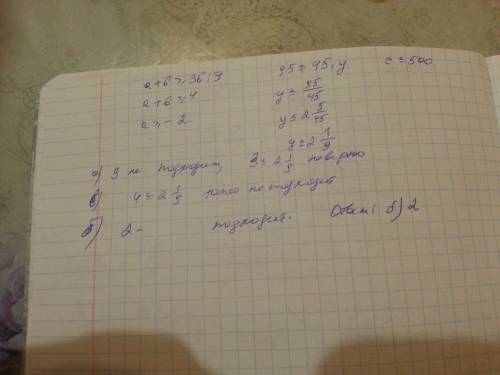 a+6≥36:9
a+6≥4
a≥-2
95≥45·y
y≤95/45
y≤2 5/45
y≤2 1/9
c≤500
а) 3 не подходит, 3≤2 1/9 неверно
в) 4≤2 1/9 тоже не подходит
б) 2 - подходит. Ответ: б) 2